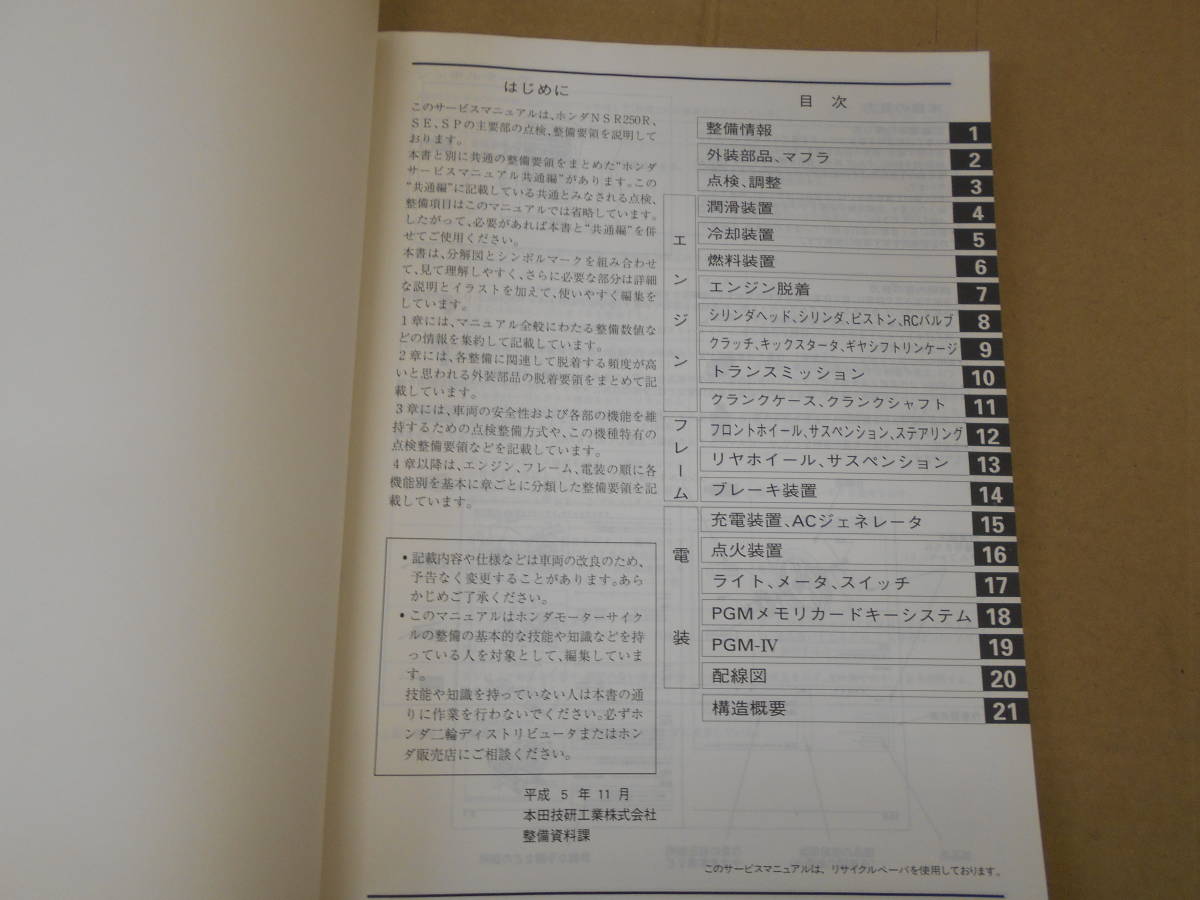 はじめに
このサービスマニュアルは、ホンダNSR250R、
SE、SPの主要部の点検、整備要領を説明して
おります。
本書と別に共通の整備要領をまとめた“ホンダ
サービスマニュアル共通編”があります。この
“共通編”に記載している共通とみなされる点検、
整備項目はこのマニュアルでは省略しています。
したがって、必要があれば本書と“共通編”を併
せてご使用ください。
本書は、分解図とシンボルマークを組み合わせ
て、見て理解しやすく、さらに必要な部分は詳細
な説明とイラストを加えて、使いやすく編集を
しています。
1章には、マニュアル全般にわたる整備数値な
どの情報を集約して記載しています。
2章には、各整備に関連して脱着する頻度が高
いと思われる外装部品の脱着要領をまとめて記
載しています。
3章には、車両の安全性および各部の機能を維
持するための点検整備方式や、この機種特有の
点検整備要領などを記載しています。
4章以降は、エンジン、フレーム、電装の順に各
機能別を基本に章ごとに分類した整備要領を記
載しています。
•記載内容や仕様などは車両の改良のため、
予告なく変更することがあります。あら
かじめご了承ください。
•このマニュアルはホンダモーターサイク
ルの整備の基本的な技能や知識などを持
っている人を対象として、編集していま
す。
技能や知識を持っていない人は本書の通
りに作業を行わないでください。必ずホ
ンダ二輪ディストリビュータまたはホン
ダ販売店にご相談ください。
平成 5 年 11 月
本田技研工業株式会社
整備資料課
目 次
整備情報 1
外装部品、マフラ 2
点検、調整 3
エンジン
潤滑装置 4
冷却装置 5
燃料装置 6
エンジン脱着 7
シリンダヘッド、シリンダ、ピストン、RCバルブ 8
クラッチ、キックスタータ、ギヤシフトリンケージ 9
トランスミッション 10
クランクケース、クランクシャフト 11
フレーム
フロントホイール、サスペンション、ステアリング 12
リヤホイール、サスペンション 13
ブレーキ装置 14
電装
充電装置、ACジェネレータ 15
点火装置 16
ライト、メータ、スイッチ 17
PGMメモリカードキーシステム 18
PGM-Ⅳ 19
配線図 20
構造概要 21
このサービスマニュアルは、リサイクルペーパを使用しております。